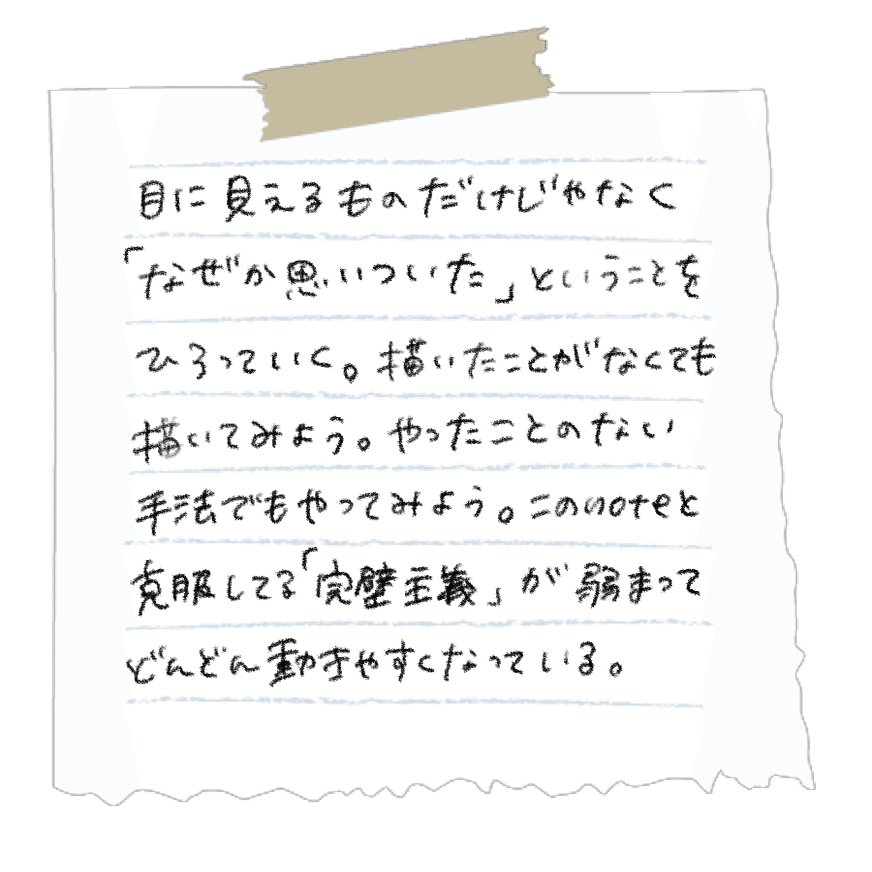 目に見えるものだけじゃなく
「なぜか思いついた」ということを
ひろっていく。描いたことがなくても
描いてみよう。やったことのない
手法でもやってみよう。このnoteと
克服してる「完壁主義」が弱まって
どんどん動きやすくなっている。